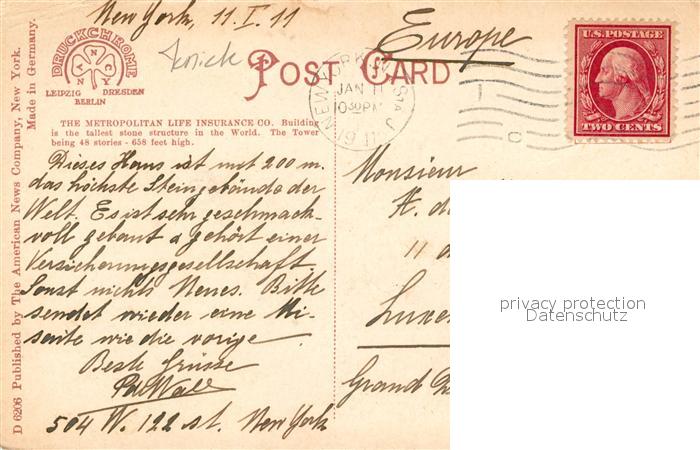 New York, 11. I. 11
Europe
DRUCKCHROME
A N C N Y
LEIPZIG DRESDEN
BERLIN
POST CARD
NEW YORK
JAN 11
10 30 PM
1911
U.S. POSTAGE
TWO CENTS
THE METROPOLITAN LIFE INSURANCE CO. Building
is the tallest stone structure in the World. The Tower
being 48 stories - 658 feet high.
Dieses Haus ist mit 200 m.
das höchste Steingebäude der
Welt. Es ist sehr geschmack-
voll gebaut & gehört einer
Versicherungsgesellschaft.
Sonst nichts Neues. Bitte
sendet wieder eine
saite wie die vorige.
Beste Grüsse
504 W. 122 st. New York
Monsieur
11
Grand
privacy protection
Datenschutz
D 6206 Published by The American News Company, New York.
Made in Germany.